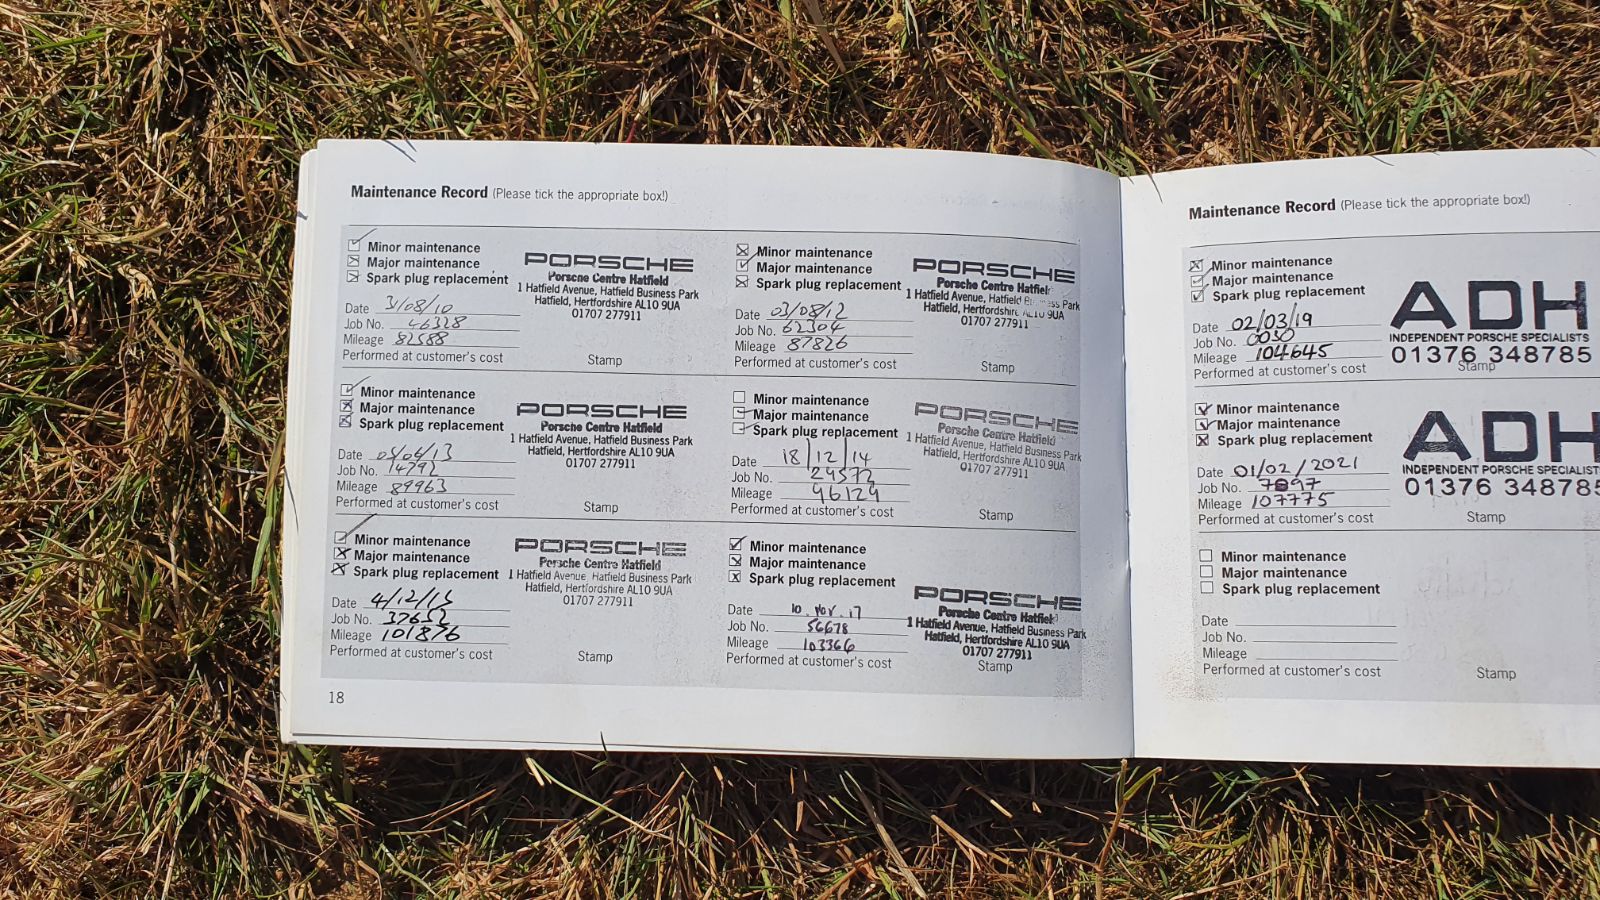 Maintenance Record (Please tick the appropriate box!)
Minor maintenance
Major maintenance
Spark plug replacement
Date 31/08/10
Job No. 46328
Mileage 82588
Performed at customer's cost
PORSCHE
Porsche Centre Hatfield
1 Hatfield Avenue, Hatfield Business Park
Hatfield, Hertfordshire AL10 9UA
01707 277911
Stamp
Minor maintenance
Major maintenance
Spark plug replacement
Date 03/08/12
Job No. 62304
Mileage 87826
Performed at customer's cost
PORSCHE
Porsche Centre Hatfield
1 Hatfield Avenue, Hatfield Business Park
Hatfield, Hertfordshire AL10 9UA
01707 277911
Stamp
Minor maintenance
Major maintenance
Spark plug replacement
Date
Job No. 14792
Mileage 89963
Performed at customer's cost
PORSCHE
Porsche Centre Hatfield
1 Hatfield Avenue, Hatfield Business Park
Hatfield, Hertfordshire AL10 9UA
01707 277911
Stamp
Minor maintenance
Major maintenance
Spark plug replacement
Date 18/12/14
Job No. 24572
Mileage 96124
Performed at customer's cost
PORSCHE
Porsche Centre Hatfield
1 Hatfield Avenue, Hatfield Business Park
Hatfield, Hertfordshire AL10 9UA
01707 277911
Stamp
Minor maintenance
Major maintenance
Spark plug replacement
Date 4/12/15
Job No. 37652
Mileage 101876
Performed at customer's cost
PORSCHE
Porsche Centre Hatfield
1 Hatfield Avenue, Hatfield Business Park
Hatfield, Hertfordshire AL10 9UA
01707 277911
Stamp
Minor maintenance
Major maintenance
Spark plug replacement
Date 10 Nov 17
Job No. 56678
Mileage 103366
Performed at customer's cost
PORSCHE
Porsche Centre Hatfield
1 Hatfield Avenue, Hatfield Business Park
Hatfield, Hertfordshire AL10 9UA
01707 277911
Stamp
18
Maintenance Record (Please tick the appropriate box!)
Minor maintenance
Major maintenance
Spark plug replacement
Date 02/03/19
Job No. 0030
Mileage 104645
Performed at customer's cost
ADH
INDEPENDENT PORSCHE SPECIALISTS
01376 348785
Stamp
Minor maintenance
Major maintenance
Spark plug replacement
Date 01/02/2021
Job No. 7897
Mileage 107775
Performed at customer's cost
ADH
INDEPENDENT PORSCHE SPECIALIST
01376 348785
Stamp
Minor maintenance
Major maintenance
Spark plug replacement
Date
Job No.
Mileage
Performed at customer's cost
Stamp